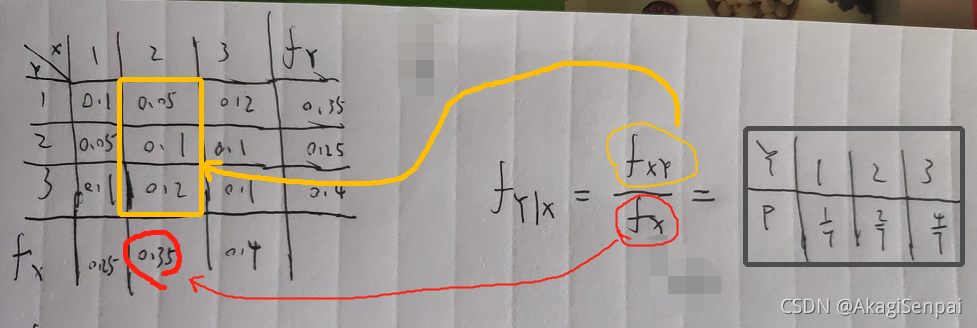 Y X 1 2 3 fY
1 0.1 0.05 0.2 0.35
2 0.05 0.1 0.1 0.25
3 0.1 0.2 0.1 0.4
fX 0.25 0.35 0.4
fY|X = fXY / fX =
Y 1 2 3
P 1/7 2/7 4/7
CSDN @AkagiSenpai